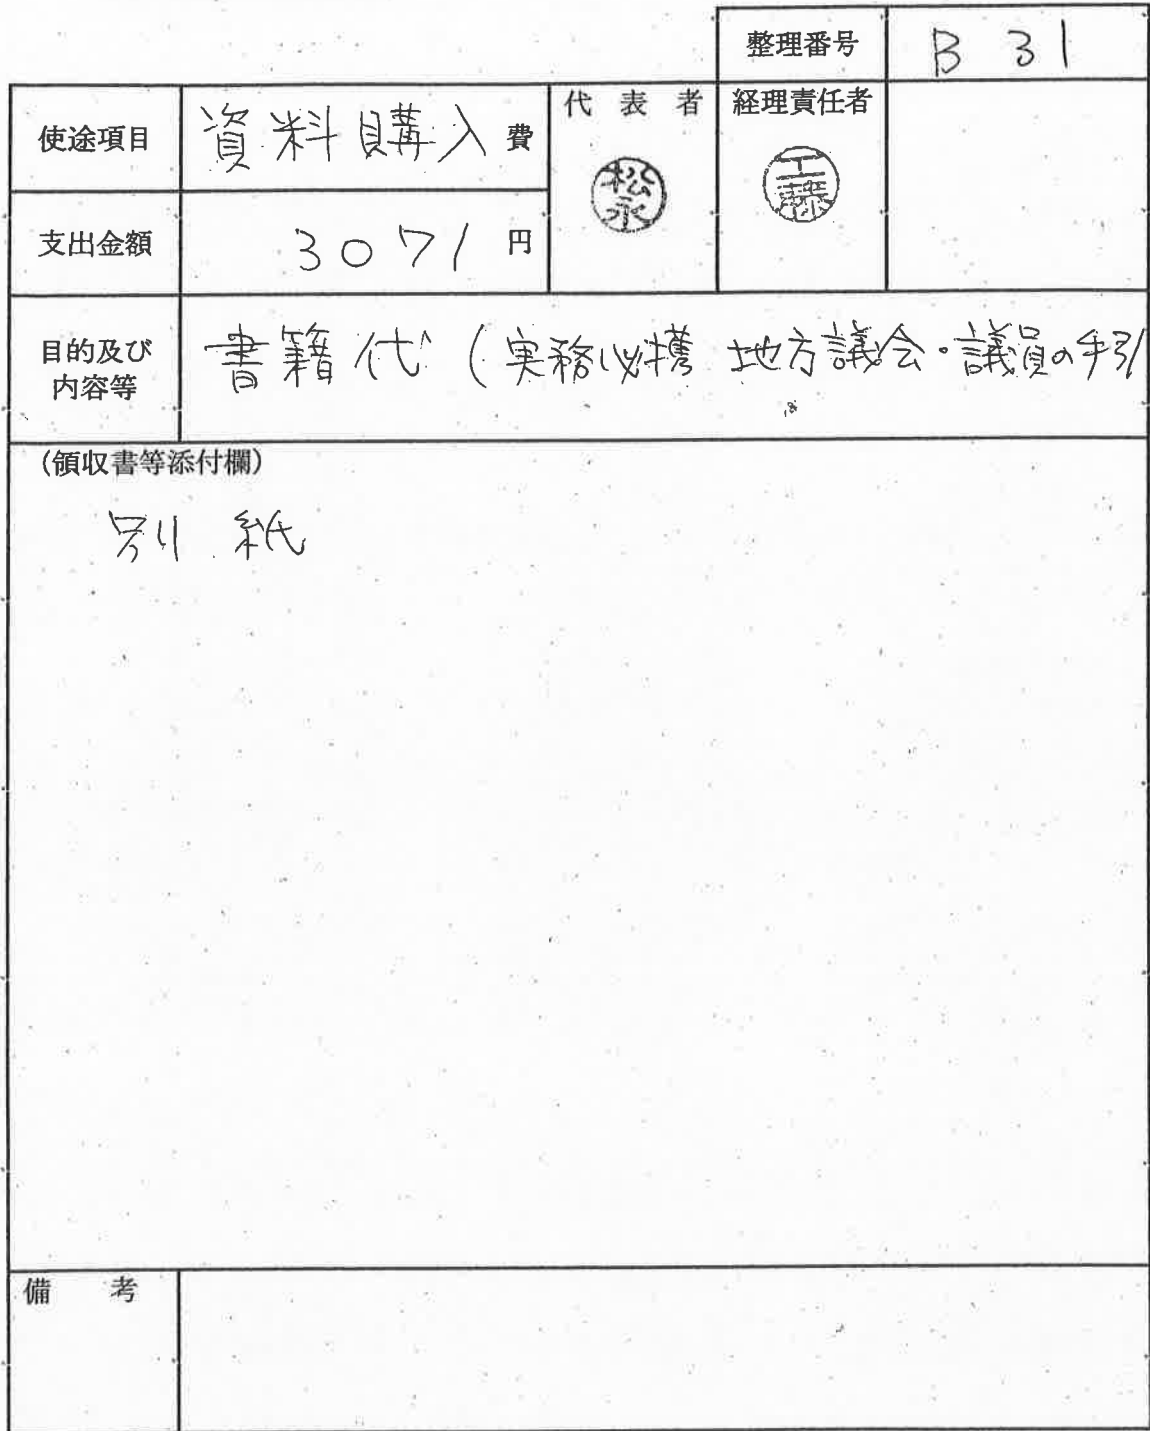 整理番号 B 31
使途項目 資料購入費 代表者 経理責任者
松永 工藤
支出金額 3071 円
目的及び内容等 書籍代 (実務必携 地方議会・議員の手引
(領収書等添付欄)
別紙
備考